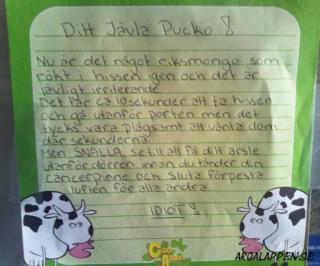 Ditt Jävla Pucko!
Nu är det något riksmongo som
rökt i hissen igen och det är
jävligt irriterande.
Det tar ca 10 sekunder att ta hissen
och gå utanför porten men det
tycks vara plågsamt att vänta dom
där sekunderna.
Men SNÄLLA se till att få ditt arsle
utanför dörren innan du tänder din
cancerpinne och sluta förpesta
luften för alla andra.
IDIOT!
ARGALAPPEN.SE